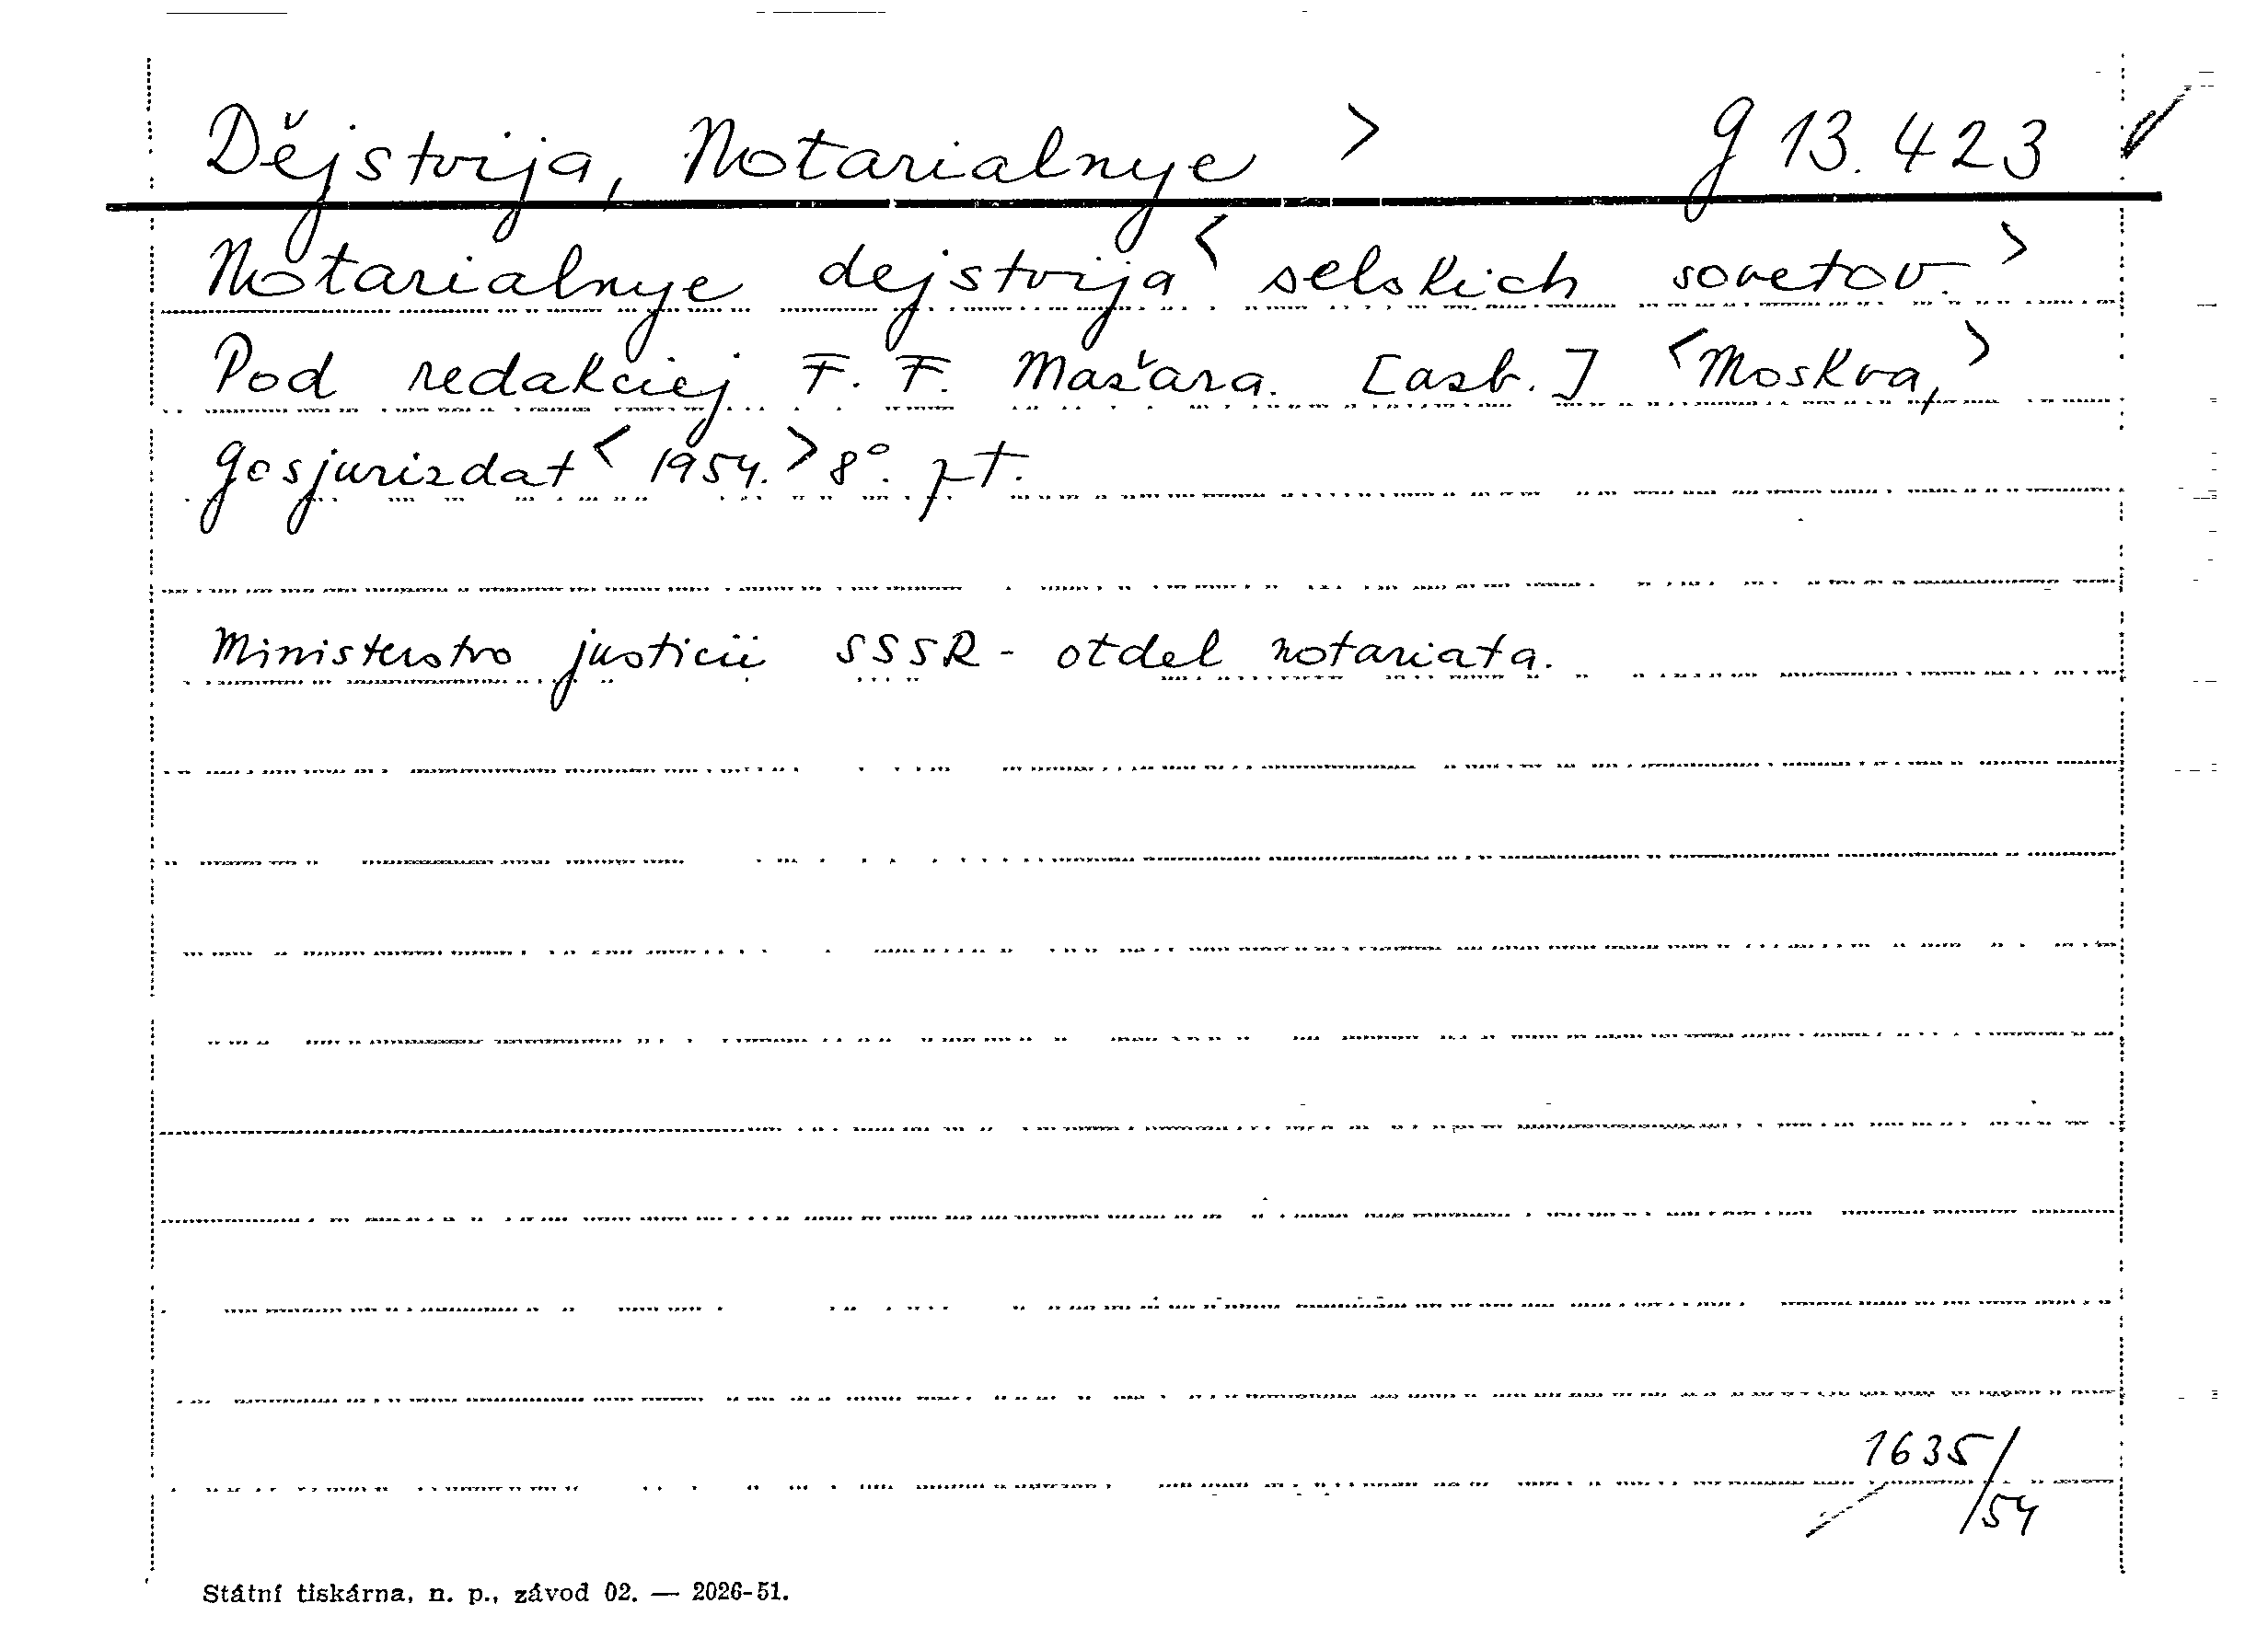 Dějstvija, Notarialnye > g 13.423 ✓
Notarialnye dejstvija < selskich sovetov. >
Pod redakciej F. F. Mažara. [azb.] < Moskva, >
Gosjurizdat < 1954. > 8°. pt.
Ministerstvo justicii SSSR - otdel notariata.
1635/54
Státní tiskárna, n. p., závod 02. — 2026-51.